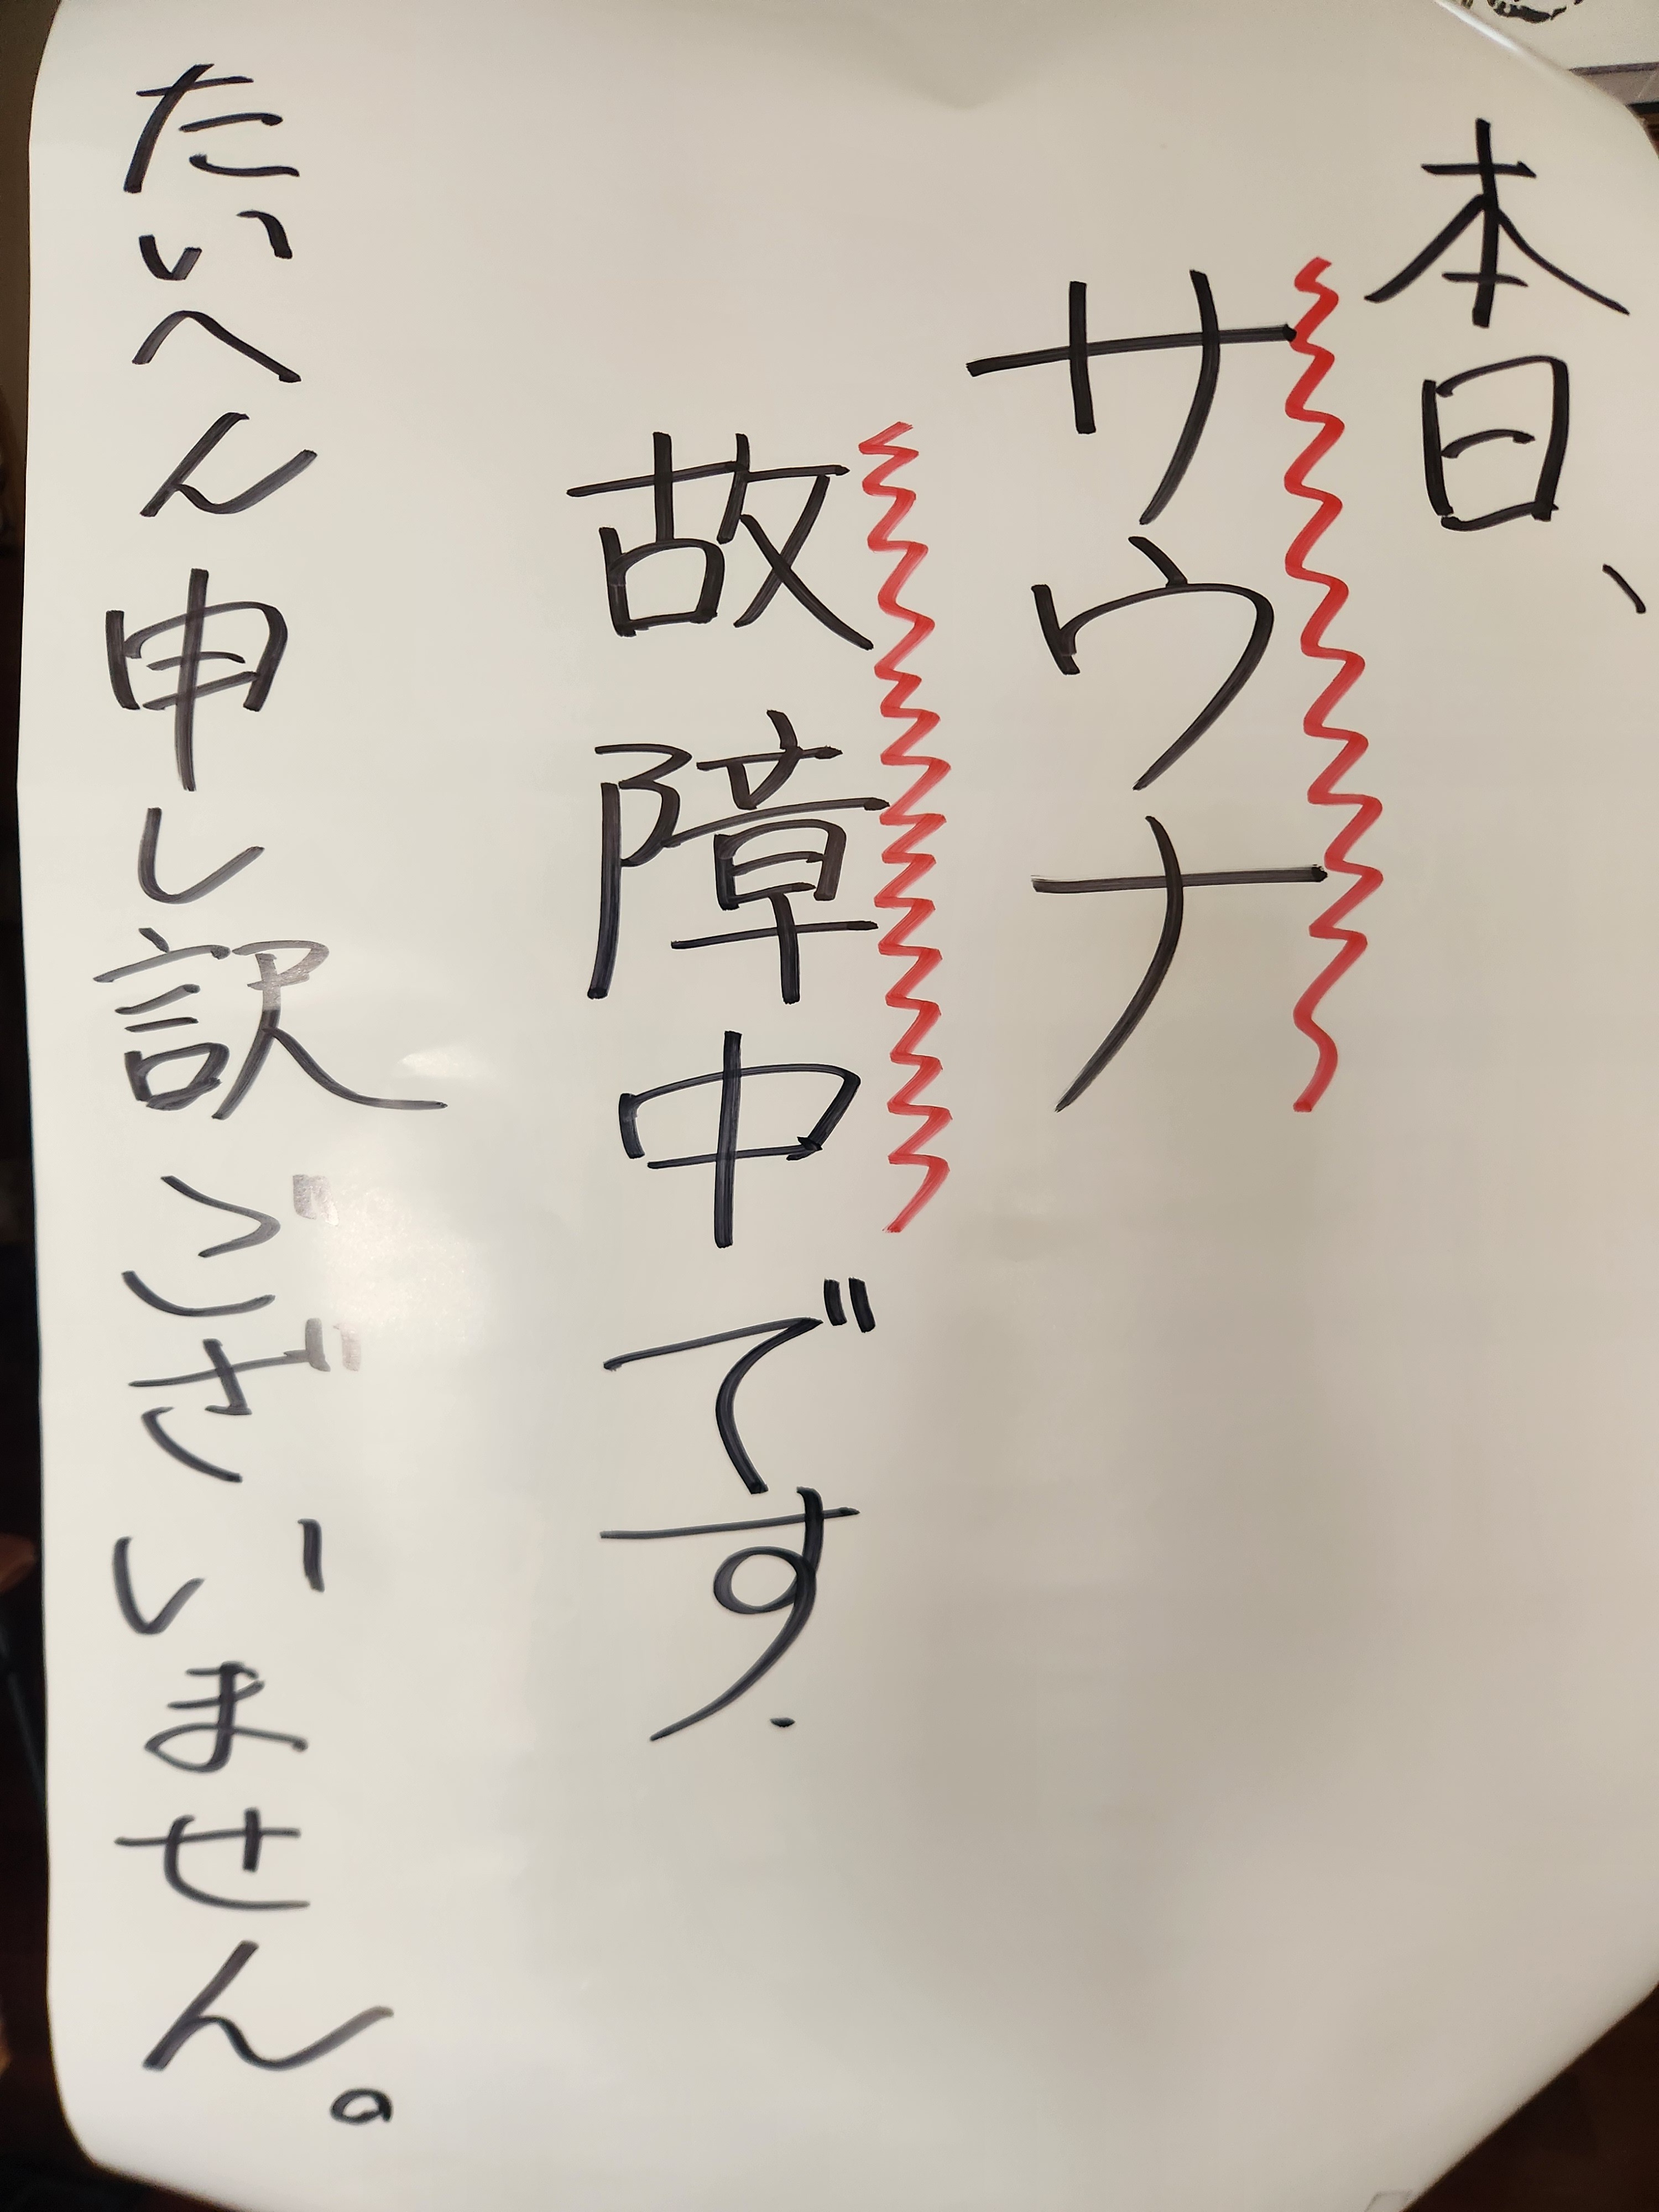 本日、
サウナ
故障中です.
たいへん申し訳ございません。